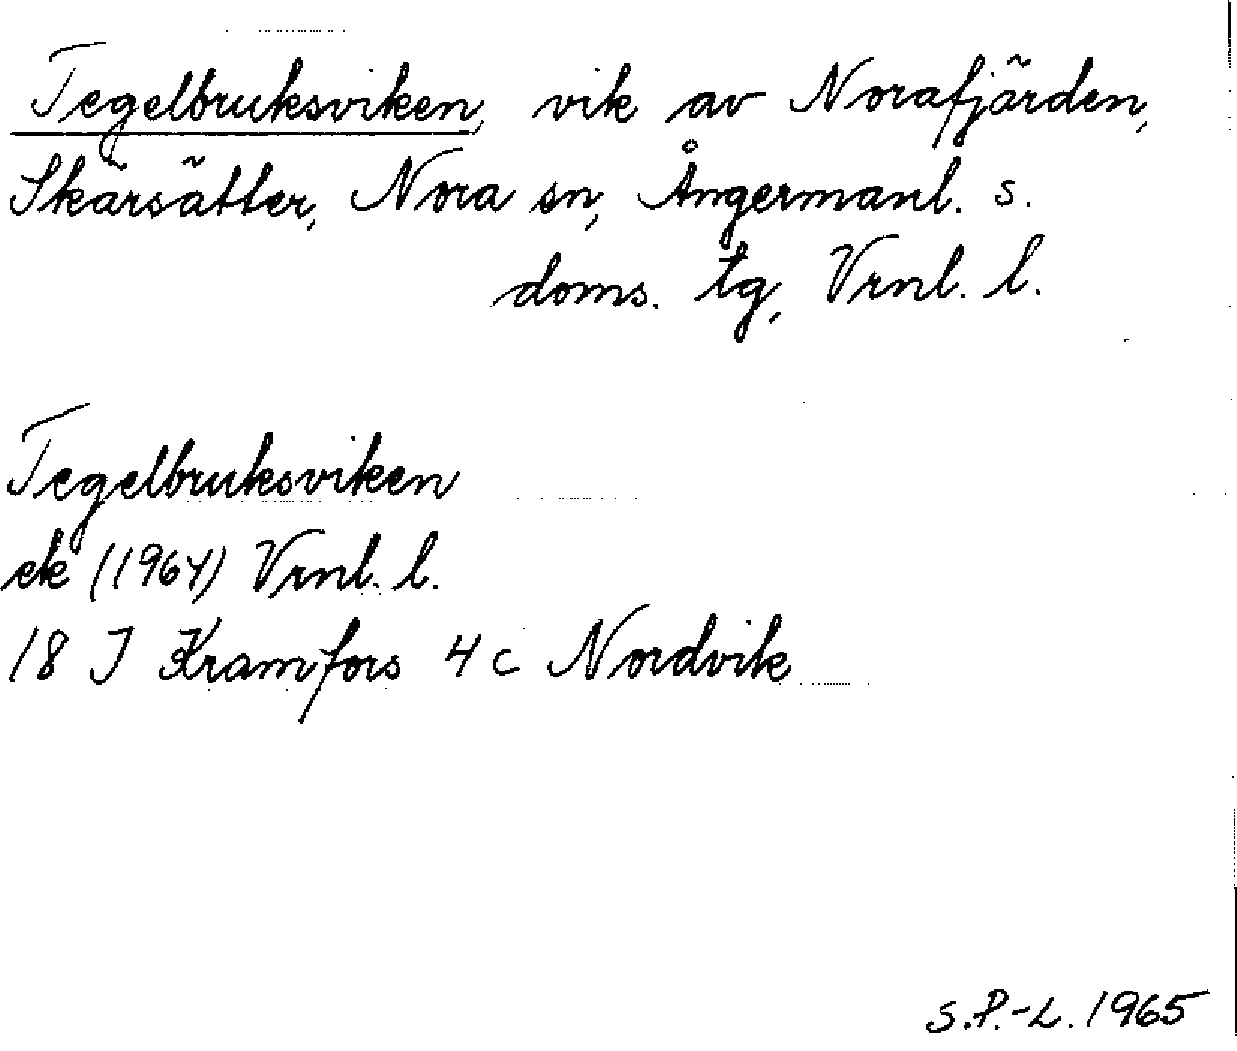 Tegelbruksviken, vik av Norafjärden,
Skärsätter, Nora sn, Ångermanl. s.
doms. tg, Vrnl. l.
Tegelbruksviken
ek (1964) Vrnl. l.
18 J Kramfors 4 c Nordvik
S.P.-L. 1965